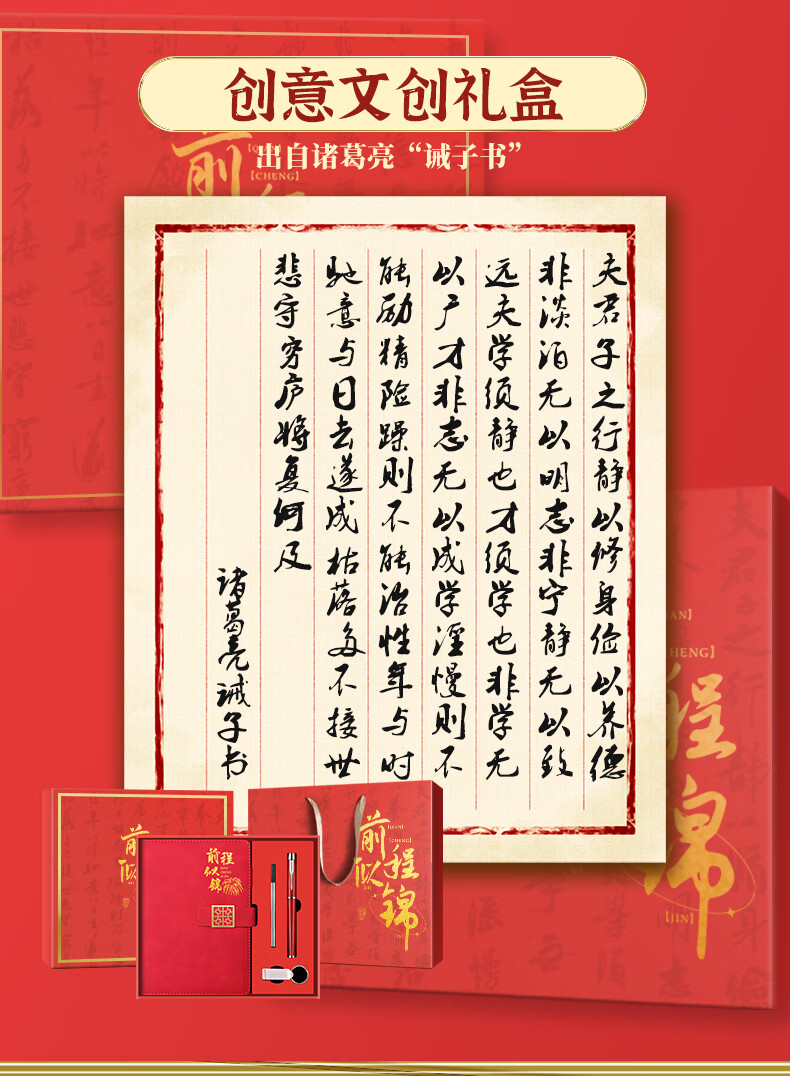 创意文创礼盒
出自诸葛亮“诫子书”
前
【CHENG】
夫君子之行静以修身俭以养德
非淡泊无以明志非宁静无以致
远夫学须静也才须学也非学无
以广才非志无以成学淫慢则不
能励精险躁则不能治性年与时
驰意与日去遂成枯落多不接世
悲守穷庐将复何及
诸葛亮诫子书
程
锦
【JIN】
前
似
前程
似锦
前
【QIAN】
程
【CHENG】
似
锦
【JIN】